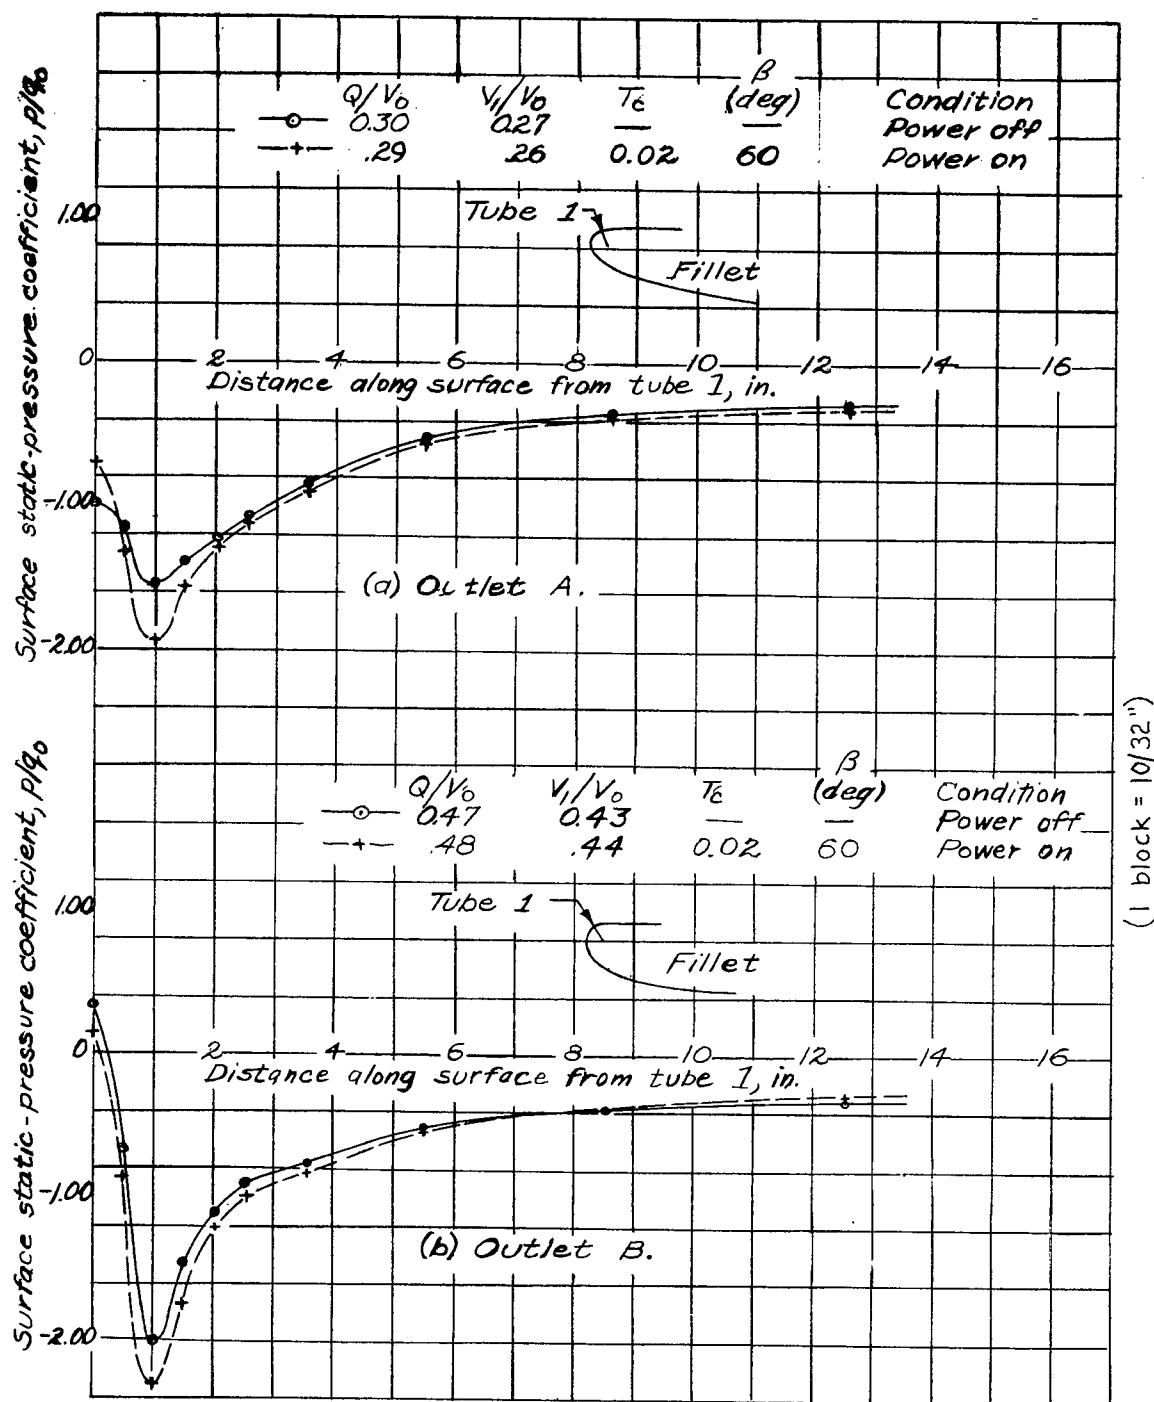 Surface static-pressure coefficient, p/q₀
β
Q/V₀ V₁/V₀ T꜀ (deg) Condition
0.30 0.27 — — Power off
.29 .26 0.02 60 Power on
1.00
Tube 1
Fillet
0 2 4 6 8 10 12 14 16
Distance along surface from tube 1, in.
-1.00
(a) Outlet A.
-2.00
Surface static-pressure coefficient, p/q₀
β
Q/V₀ V₁/V₀ T꜀ (deg) Condition
0.47 0.43 — — Power off
.48 .44 0.02 60 Power on
1.00
Tube 1
Fillet
0 2 4 6 8 10 12 14 16
Distance along surface from tube 1, in.
-1.00
(b) Outlet B.
-2.00
(1 block = 10/32")